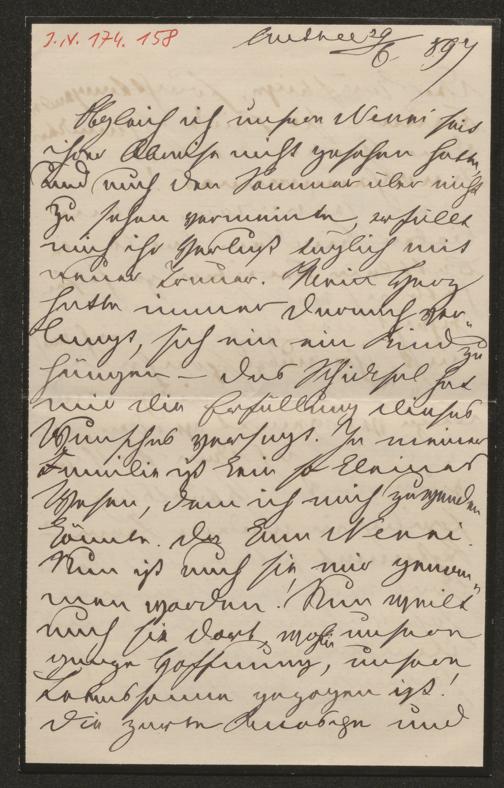 J.N. 174.158
Aussee 29/6 897
Obgleich ich unsere Nenni seit
ihrer Abreise nicht gesehen hatte,
und auch den Sommer über nicht
zu sehen vermeinte, erfüllt
mich ihr Verlust täglich mit
neuer Trauer. Mein Herz
hatte immer darnach ver-
langt, sich an ein Kind zu
hängen – das Schicksal hat
mir die Erfüllung dieses
Wunsches versagt. In meiner
Familie ist kein so kleines
Wesen, dem ich mich zuwenden
könnte. Da kam Nenni.
Nun ist auch sie mir genom-
men worden! Nun weilt
auch sie dort, wohin unsere
ganze Hoffnung, unsere
Lebenssonne gezogen ist!
Die zarte Knospe und